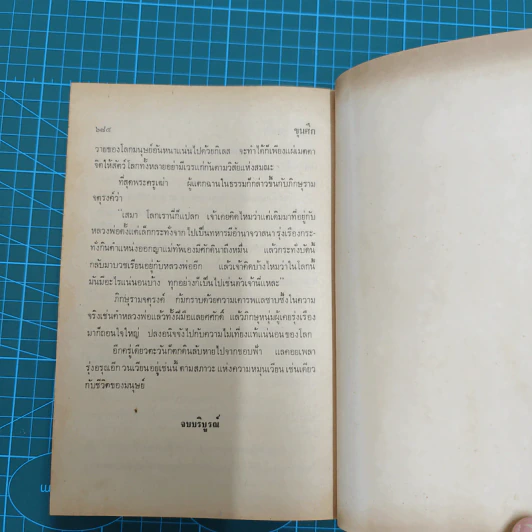 ๖๗๔ ขุนศึก
วายของโลกมนุษย์อันหนาแน่นไปด้วยกิเลส จะทำได้ก็เพียงแผ่เมตตา
จิตให้สัตว์โลกทั้งหลายอย่ามีเวรแก่กันตามวิสัยแห่งสมณะ
ที่สุดพระครูเฒ่า ผู้แตกฉานในธรรมก็กล่าวขึ้นกับภิกษุราม
จตุรงค์ว่า
"เสมา โลกเรานี้ก็แปลก เจ้าเคยคิดไหมว่าแต่เดิมมาที่อยู่กับ
หลวงพ่อตั้งแต่เล็กกระทั่งจากไปเป็นทหารมีอำนาจวาสนา รุ่งเรืองกระ-
ทั่งกินตำแหน่งออกญาแม่ทัพเองมีศักดินาถึงหมื่น แล้วกระทั่งบัดนี้
กลับมาบวชเรียนอยู่กับหลวงพ่ออีก แล้วเจ้าคิดบ้างไหมว่าในโลกนี้
มันมีอะไรแน่นอนบ้าง ทุกอย่างก็เป็นไปเช่นตัวเจ้านี่แหละ"
ภิกษุรามจตุรงค์ ก้มกราบด้วยความเคารพแลซาบซึ้งในความ
จริงเช่นคำหลวงพ่อแล้วทั้งฝีมือแลยศศักดิ์ แล้วภิกษุหนุ่มผู้เคยรุ่งเรือง
มาก็ถอนใจใหญ่ ปลงอนิจจังไปกับความไม่เที่ยงแท้แน่นอนของโลก
อีกครู่เดียวตะวันก็ตกดินลับหายไปจากขอบฟ้า แลคอยเพลา
รุ่งอรุณอีก วนเวียนอยู่เช่นนี้ ตามสภาวะ แห่งความหมุนเวียน เช่นเดียว
กับชีวิตของมนุษย์
จบบริบูรณ์